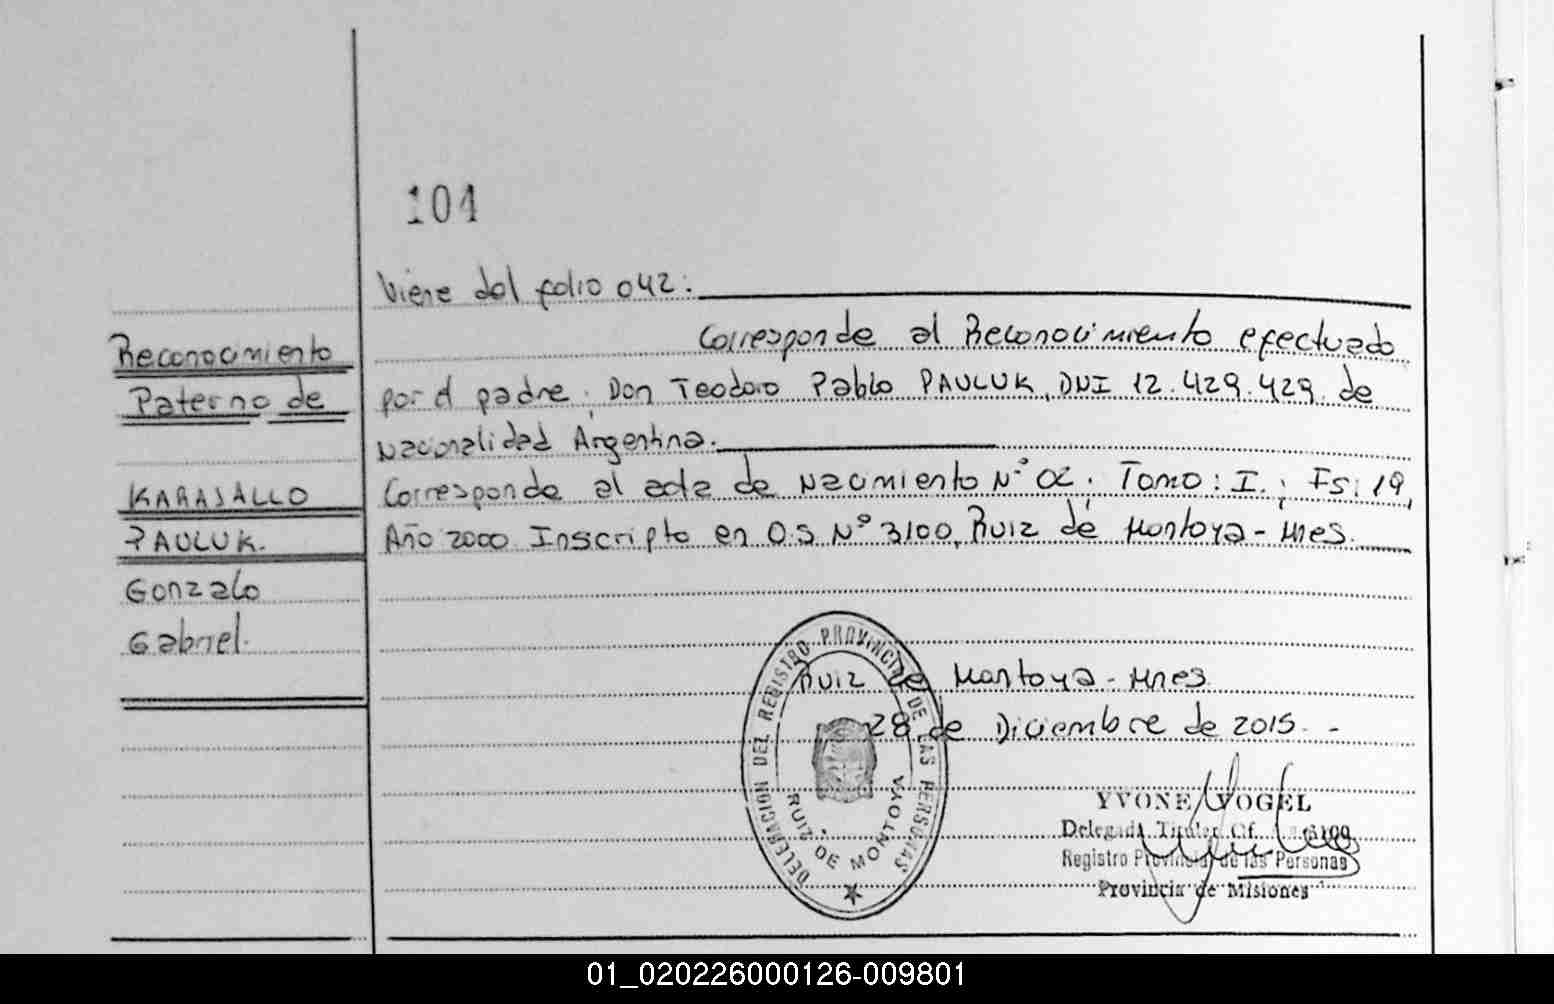 104
Viene del folio 042:
Corresponde al Reconocimiento efectuado
por el padre, Don Teodoro Pablo PAULUK, DNI 12.429.429. de
Nacionalidad Argentina.
Corresponde al acta de Nacimiento N° 02. Tomo: I.; Fs: 19,
Año 2000. Inscripto en O.S. N° 3100, Ruiz de Montoya - Mnes.
Reconocimiento
Paterno de
KARASALLO
PAULUK.
Gonzalo
Gabriel.
Ruiz de Montoya - Mnes
28 de Diciembre de 2015. -
DELEGACION DEL REGISTRO PROVINCIAL DE LAS PERSONAS
RUIZ DE MONTOYA
YVONE VOGEL
Delegada Titular Of. 3100
Registro Provincial de las Personas
Provincia de Misiones
01_020226000126-009801